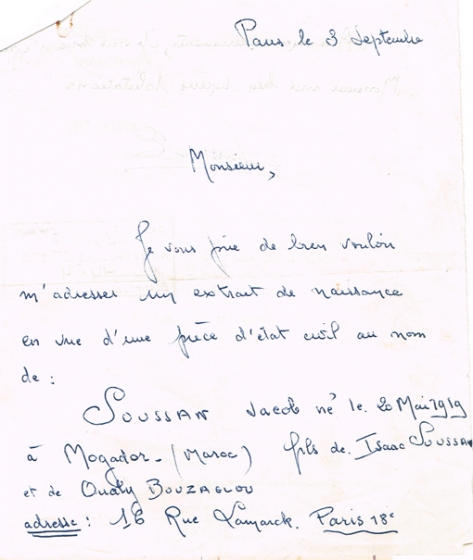 Paris le 3 Septembre
Monsieur,
Je vous prie de bien vouloir
m'adresser un extrait de naissance
en vue d'une pièce d'état civil au nom
de :
SOUSSAN Jacob né le 20 Mai 1919
à Mogador - (Maroc) fils de Isaac SOUSSAN
et de Ouaty BOUZAGLOU
adresse : 16 Rue Lamarck. Paris 18e